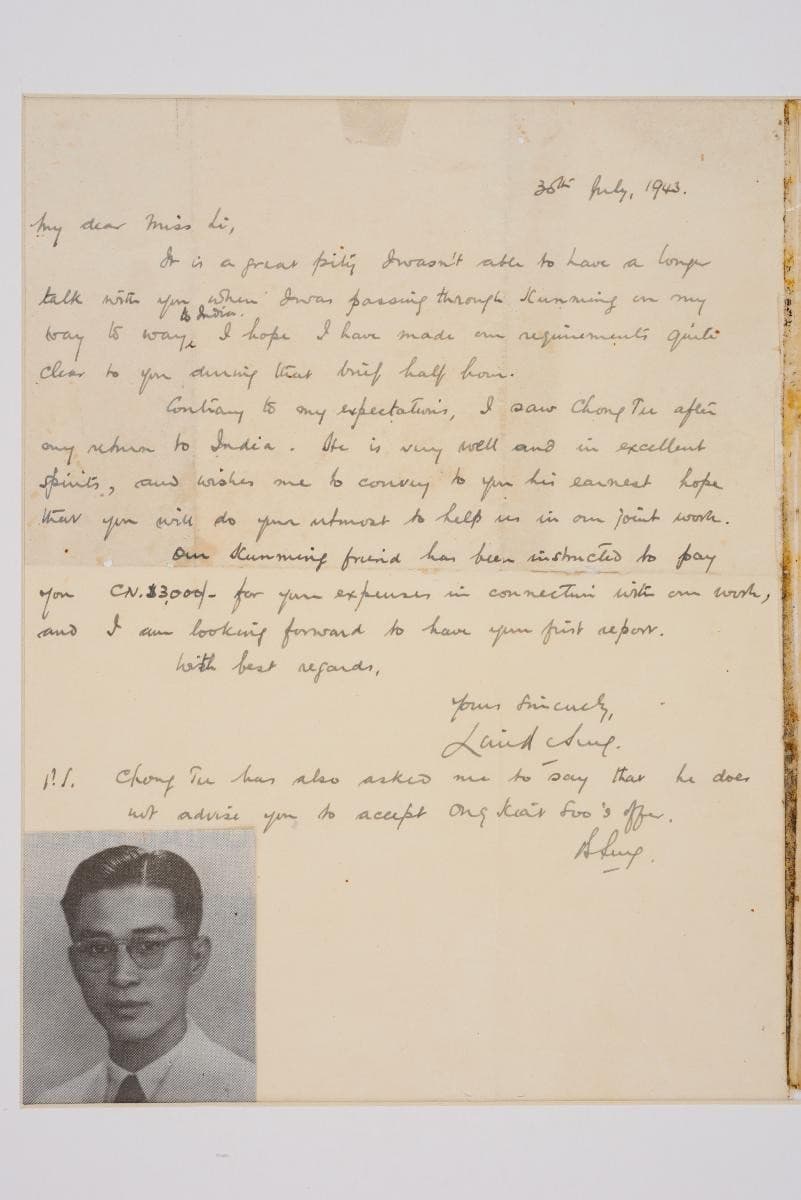 30th July, 1943.
My dear Miss Li,
It is a great pity I wasn't able to have a longer
talk with you when I was passing through Kunming on my
to India.
way to I hope I have made our requirements quite
clear to you during that brief half hour.
Contrary to my expectations, I saw Chong Tee after
my return to India. He is very well and in excellent
spirits, and wishes me to convey to you his earnest hope
that you will do your utmost to help us in our joint work.
Our Kunming friend has been instructed to pay
you CN.$3,000/- for your expenses in connection with our work,
and I am looking forward to have your first report.
With best regards,
Yours sincerely,
P.S. Chong Tee has also asked me to say that he does
not advise you to accept Ong Kiat Soo's offer.